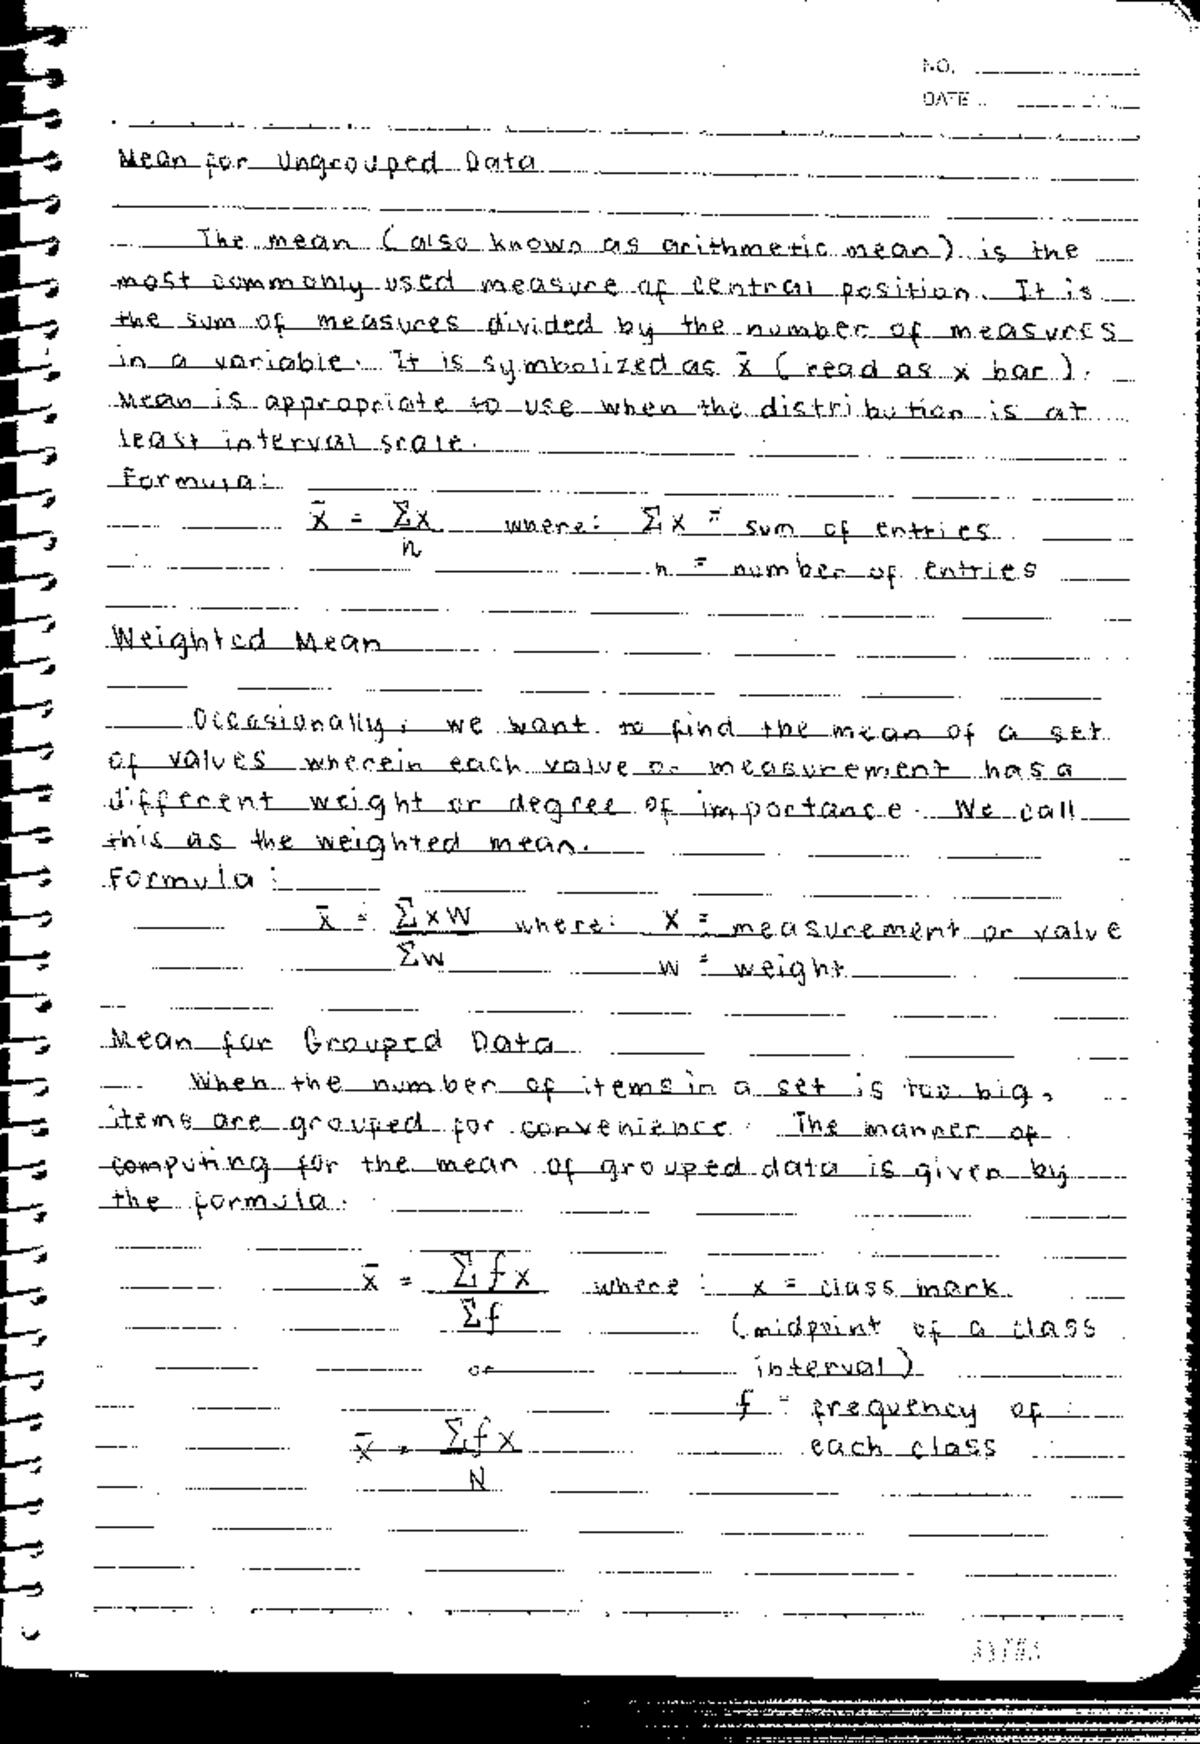 NO.
DATE
Mean for Ungrouped Data
The mean (also known as arithmetic mean) is the
most commonly used measure of central position. It is
the sum of measures divided by the number of measures
in a variable. It is symbolized as x̄ (read as x bar).
Mean is appropriate to use when the distribution is at
least interval scale.
Formula:
x̄ = Σx / n where: Σx = sum of entries
n = number of entries
Weighted Mean
Occasionally, we want to find the mean of a set
of values wherein each value or measurement has a
different weight or degree of importance. We call
this as the weighted mean.
Formula:
x̄ = Σxw / Σw where: x = measurement or value
w = weight
Mean for Grouped Data
When the number of items in a set is too big,
items are grouped for convenience. The manner of
computing for the mean of grouped data is given by
the formula.
x̄ = Σfx / Σf where: x = class mark
(midpoint of a class
or interval)
f = frequency of
x̄ = Σfx / N each class